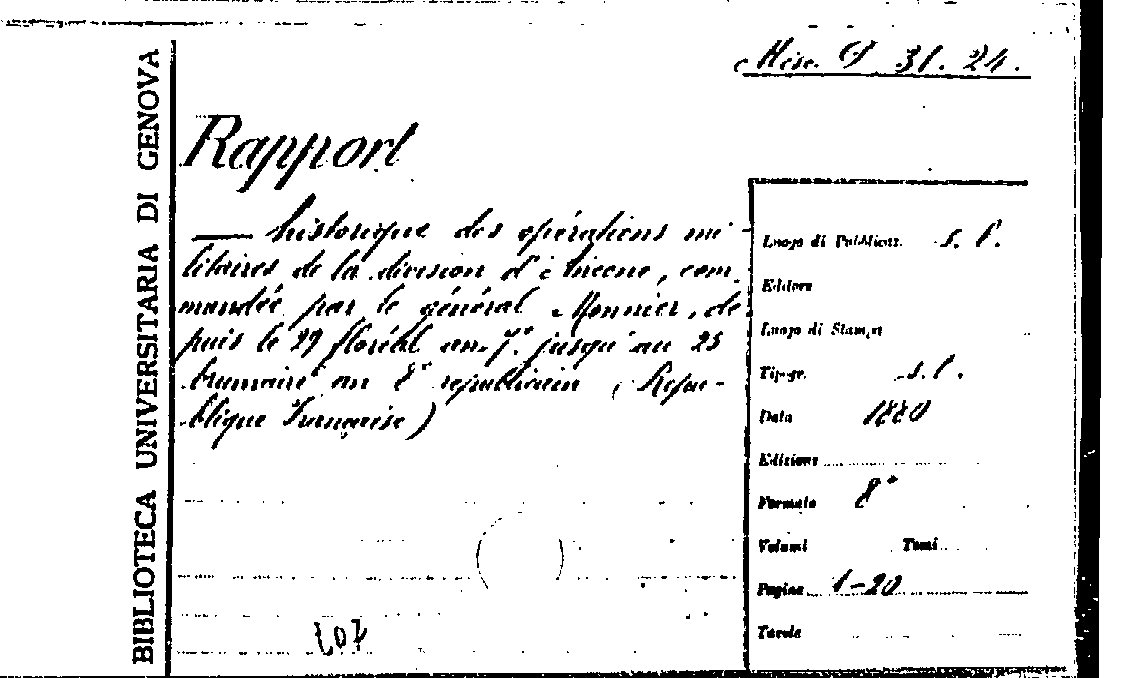 Misc. G 31. 24.
BIBLIOTECA UNIVERSITARIA DI GENOVA
Rapport
— historique des opérations mi-
litaires de la division d'Ancone, com-
mandée par le général Monnier, de
puis le 29 floréal an 7.e jusqu'au 25
brumaire an 8e republicain (Répu-
blique Française)
Luogo di Pubblicaz. s. l.
Editore
Luogo di Stampa
Tipogr. s. l.
Data
Edizione
Formato 8°
Volumi Tomi
Pagine 1-20
Tavole